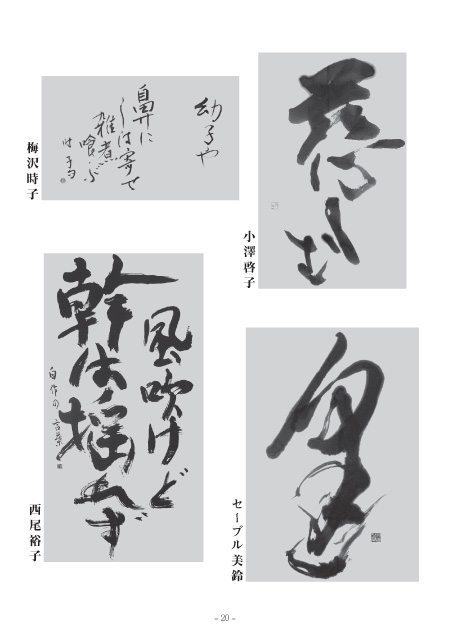 幼子や
鼻に
しは寄せ
雑煮
喰ふ
梅沢時子
小澤啓子
風吹けど
幹は揺れず
自作の言葉
西尾裕子
セーブル美鈴
– 20 –